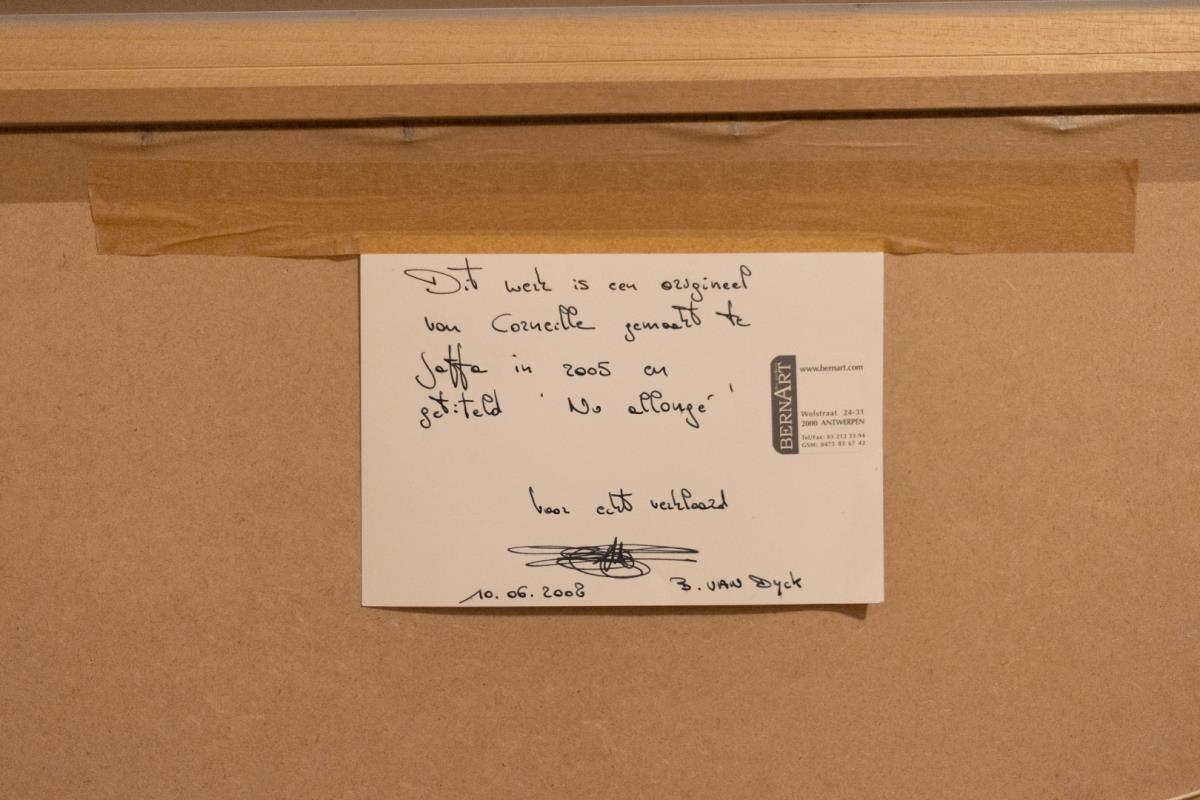 Dit werk is een origineel
van Corneille gemaakt te
Jaffa in 2005 en
getiteld ' Nu allongé '
BERNART
www.bernart.com
Wolstraat 24-31
2000 ANTWERPEN
Tel/Fax: 03 213 33 94
GSM: 0473 83 67 42
Voor echt verklaard
10.06.2008
B. VAN Dyck